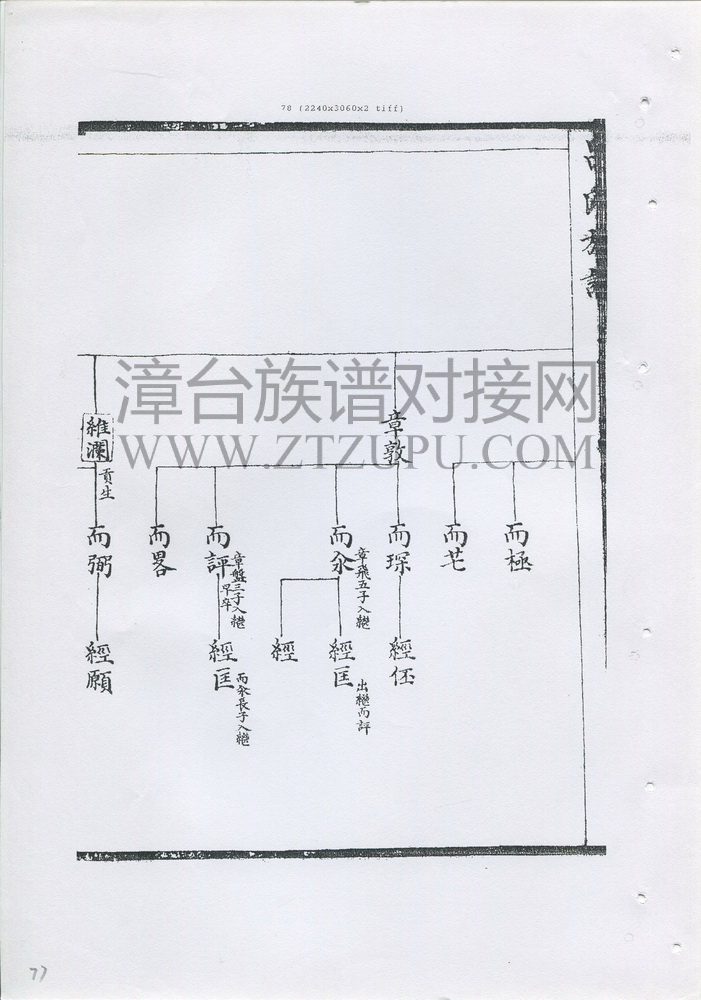 78 (2240x3060x2 tiff)
漳台族谱对接网
WWW.ZTZUPU.COM
章敦
維瀾
貢生
而極
而芒
而琛
而汆
章飛五子入繼
而評
章盤三子入繼
早卒
而畧
而弼
經伾
經匡
出繼而評
經
經匡
而汆長子入繼
經願
77